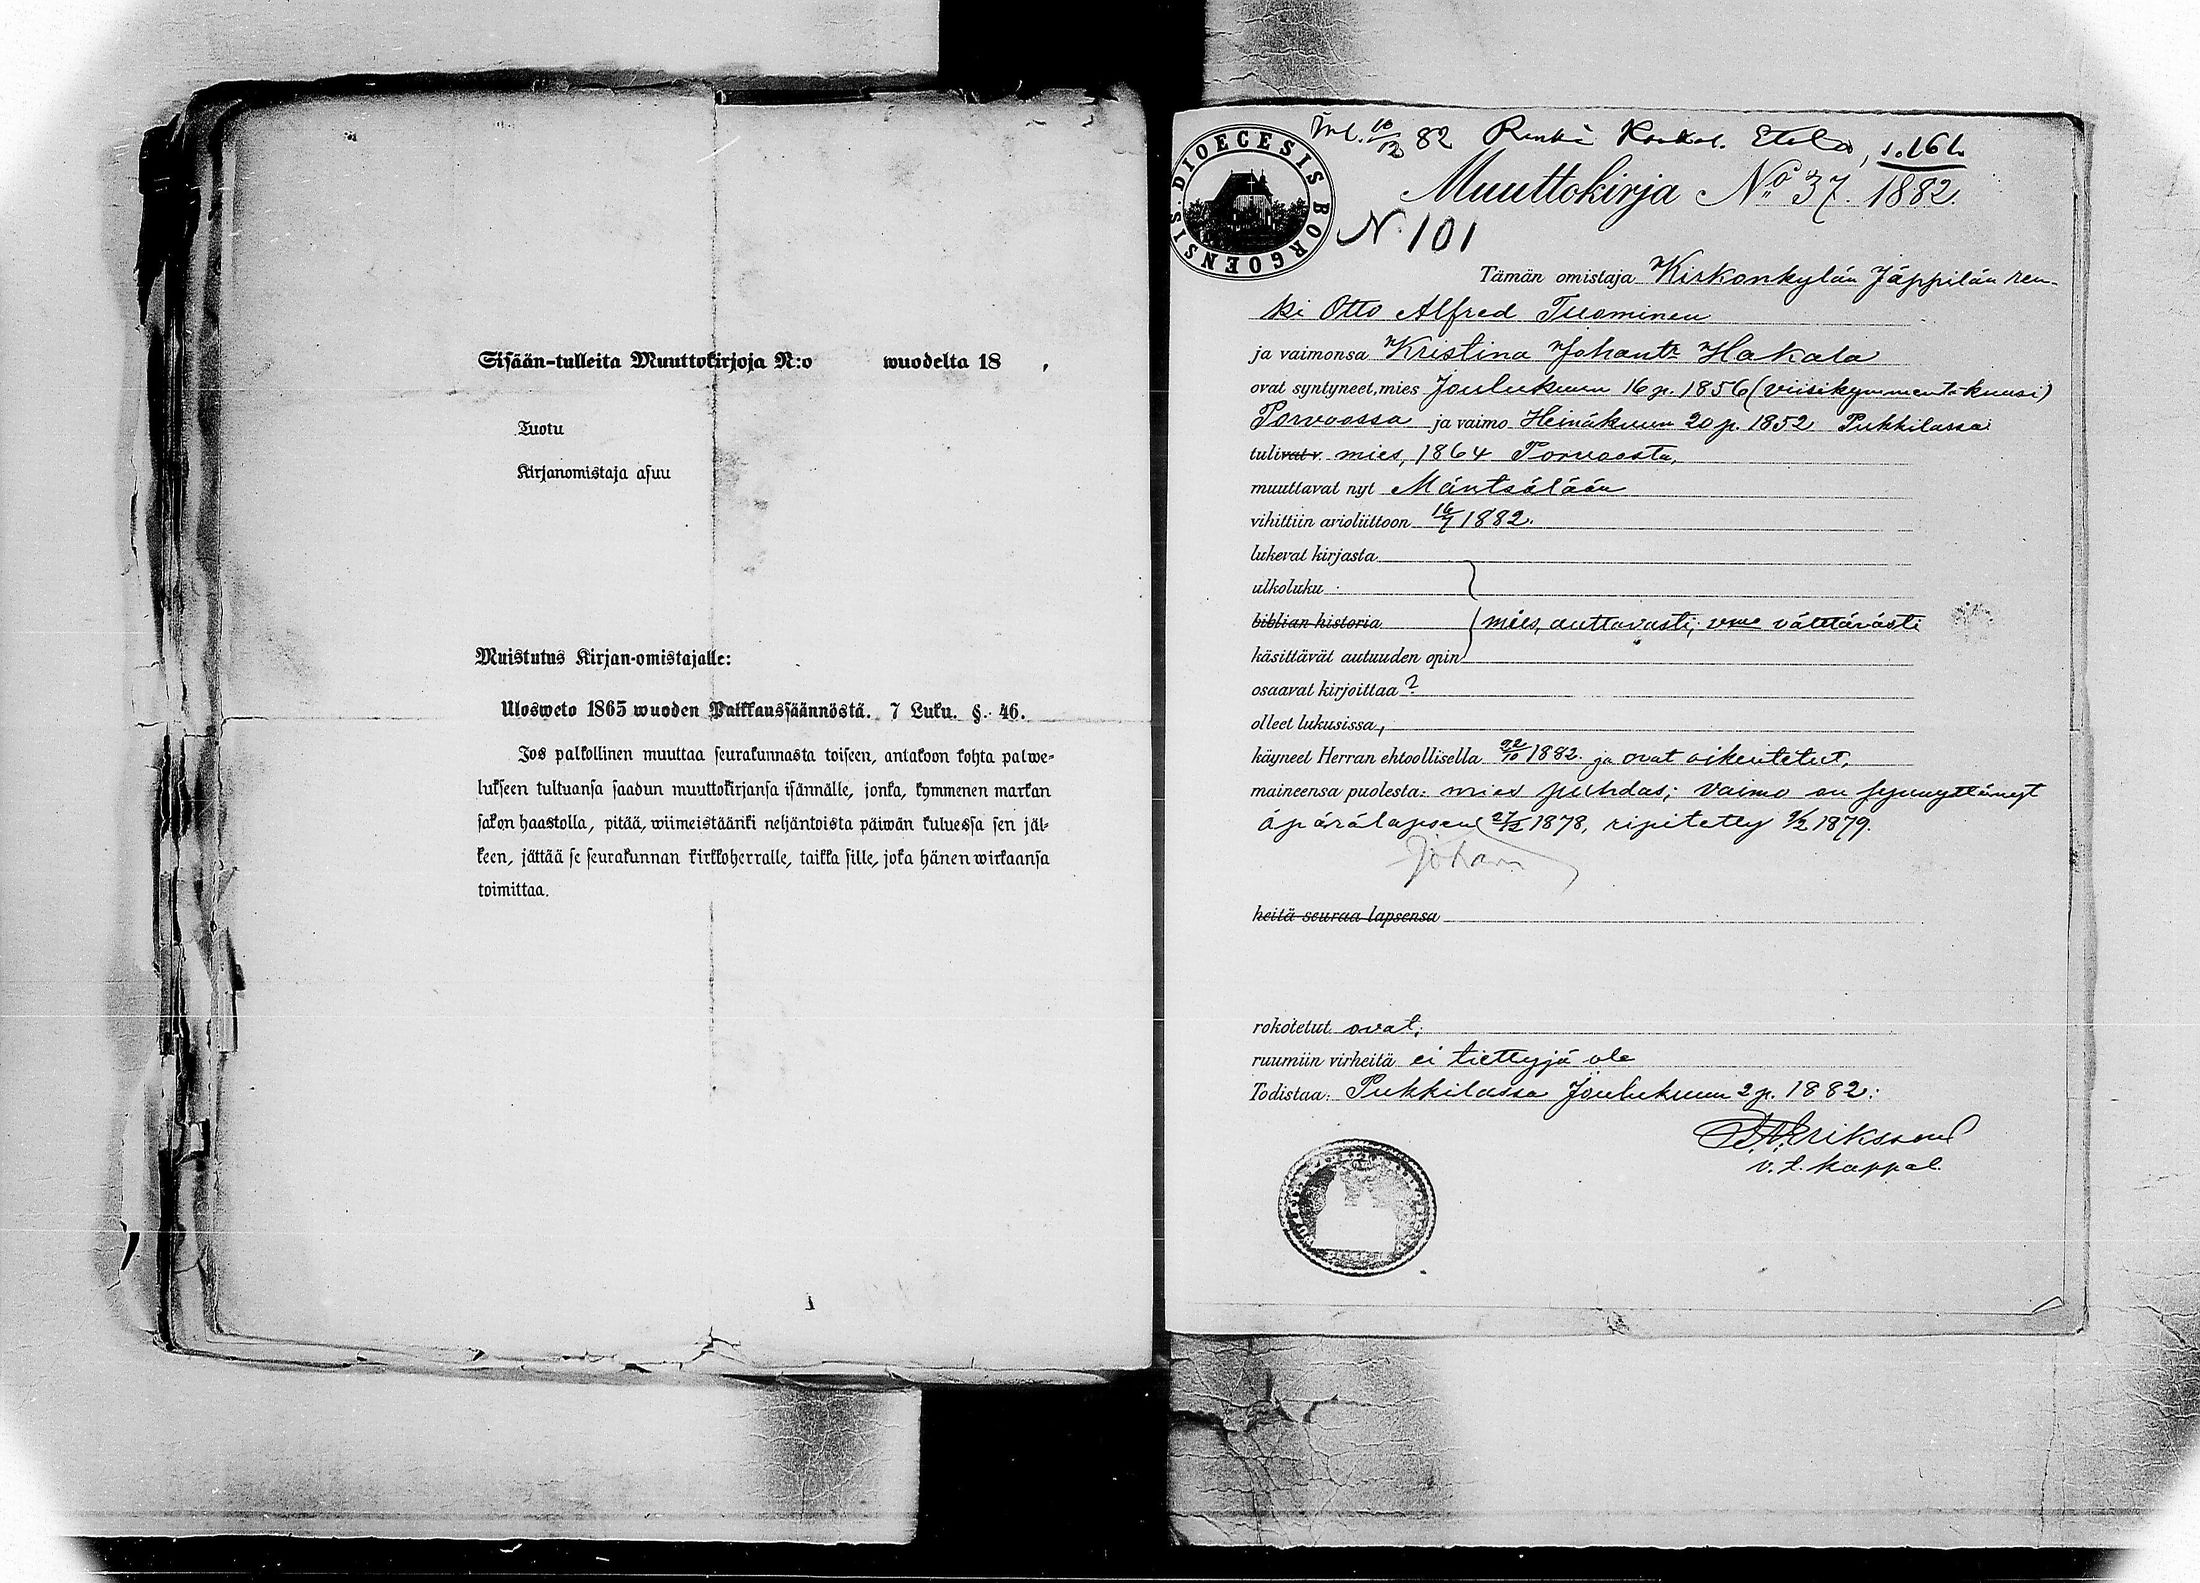 Sisään-tulleita Muuttokirjoja N:o wuodelta 18 ,
Tuotu
Kirjanomistaja asuu
Muistutus Kirjan-omistajalle:
Ulosweto 1865 wuoden Palkkaussäännöstä. 7 Luku. §. 46.
Jos palkollinen muuttaa seurakunnasta toiseen, antakoon kohta palwe-
lukseen tultuansa saadun muuttokirjansa isännälle, jonka, kymmenen markan
sakon haastolla, pitää, wiimeistäänki neljäntoista päiwän kuluessa sen jäl-
keen, jättää se seurakunnan kirkkoherralle, taikka sille, joka hänen wirkaansa
toimittaa.
10/12 82 Renki Etola, s. 161.
DIOECESIS BORGOENSIS.
Muuttokirja No 37. 1882.
N. 101
Tämän omistaja Kirkonkylän Jäppilän ren-
ki Otto Alfred Tuominen
ja vaimonsa Kristina Johant: Hakala
ovat syntyneet, mies Joulukuun 16 p. 1856 (viisikymmentäkuusi)
Porvoossa ja vaimo Heinäkuun 20 p. 1852 Pukkilassa
tulivat v. mies, 1864 Porvoosta,
muuttavat nyt Mäntsälään
vihittiin avioliittoon 16/7 1882.
lukevat kirjasta
ulkoluku
biblian historia mies, auttavasti; vmo välttävästi
käsittävät autuuden opin
osaavat kirjoittaa ?
olleet lukusissa,
käyneet Herran ehtoollisella 22/10 1882. ja ovat oikeutetut,
maineensa puolesta: mies puhdas; vaimo on synnyttänyt
äpärälapsen 27/12 1878, ripitetty 9/2 1879.
Johan
heitä seuraa lapsensa
rokotetut ovat;
ruumiin virheitä ei tiettyjä ole
Todistaa: Pukkilassa Joulukuun 2 p. 1882:
Eriksson
v. t. kappal.